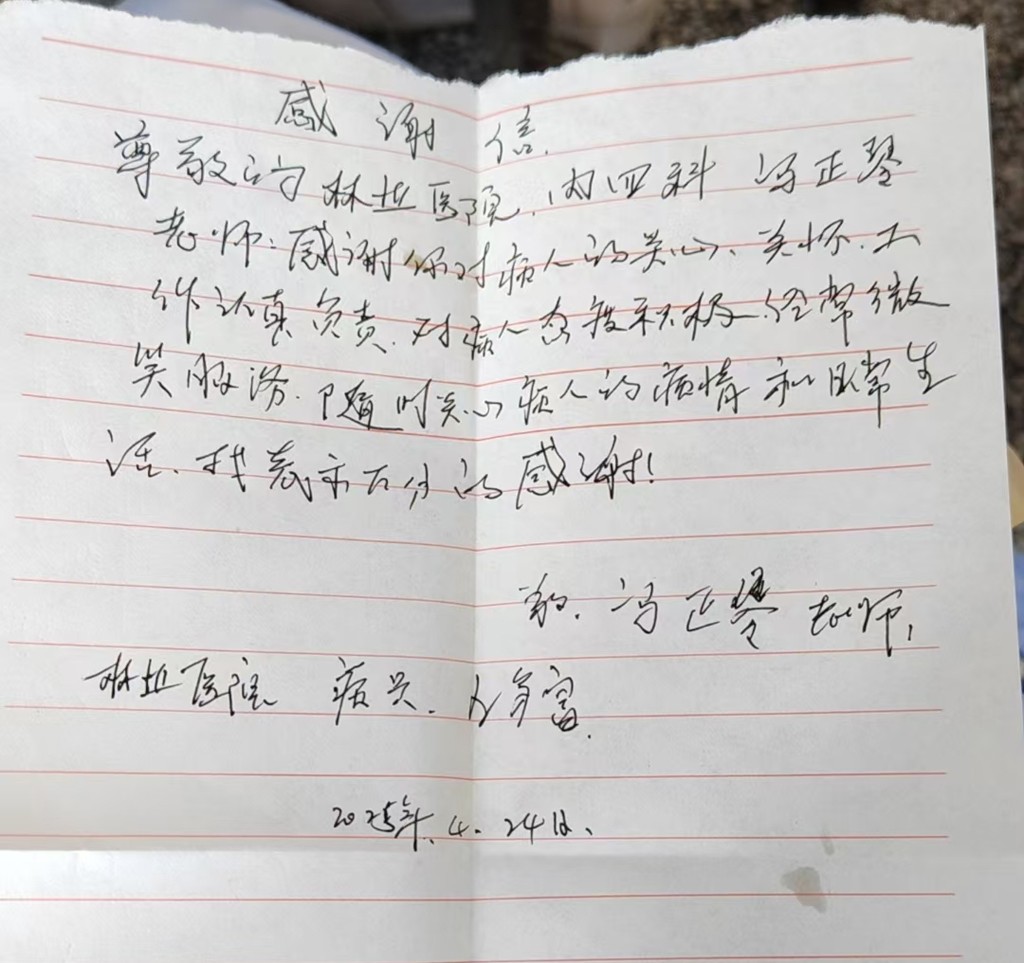 感谢信.
尊敬的林业医院.内四科 冯正琴
老师:感谢你对病人的关心、关怀.工
作认真负责.对病人态度积极.经常微
笑服务.随时关心病人的病情和日常生
活.我表示万分的感谢!
致.冯正琴老师,
林业医院 病员.富.
2025年.4.24日、